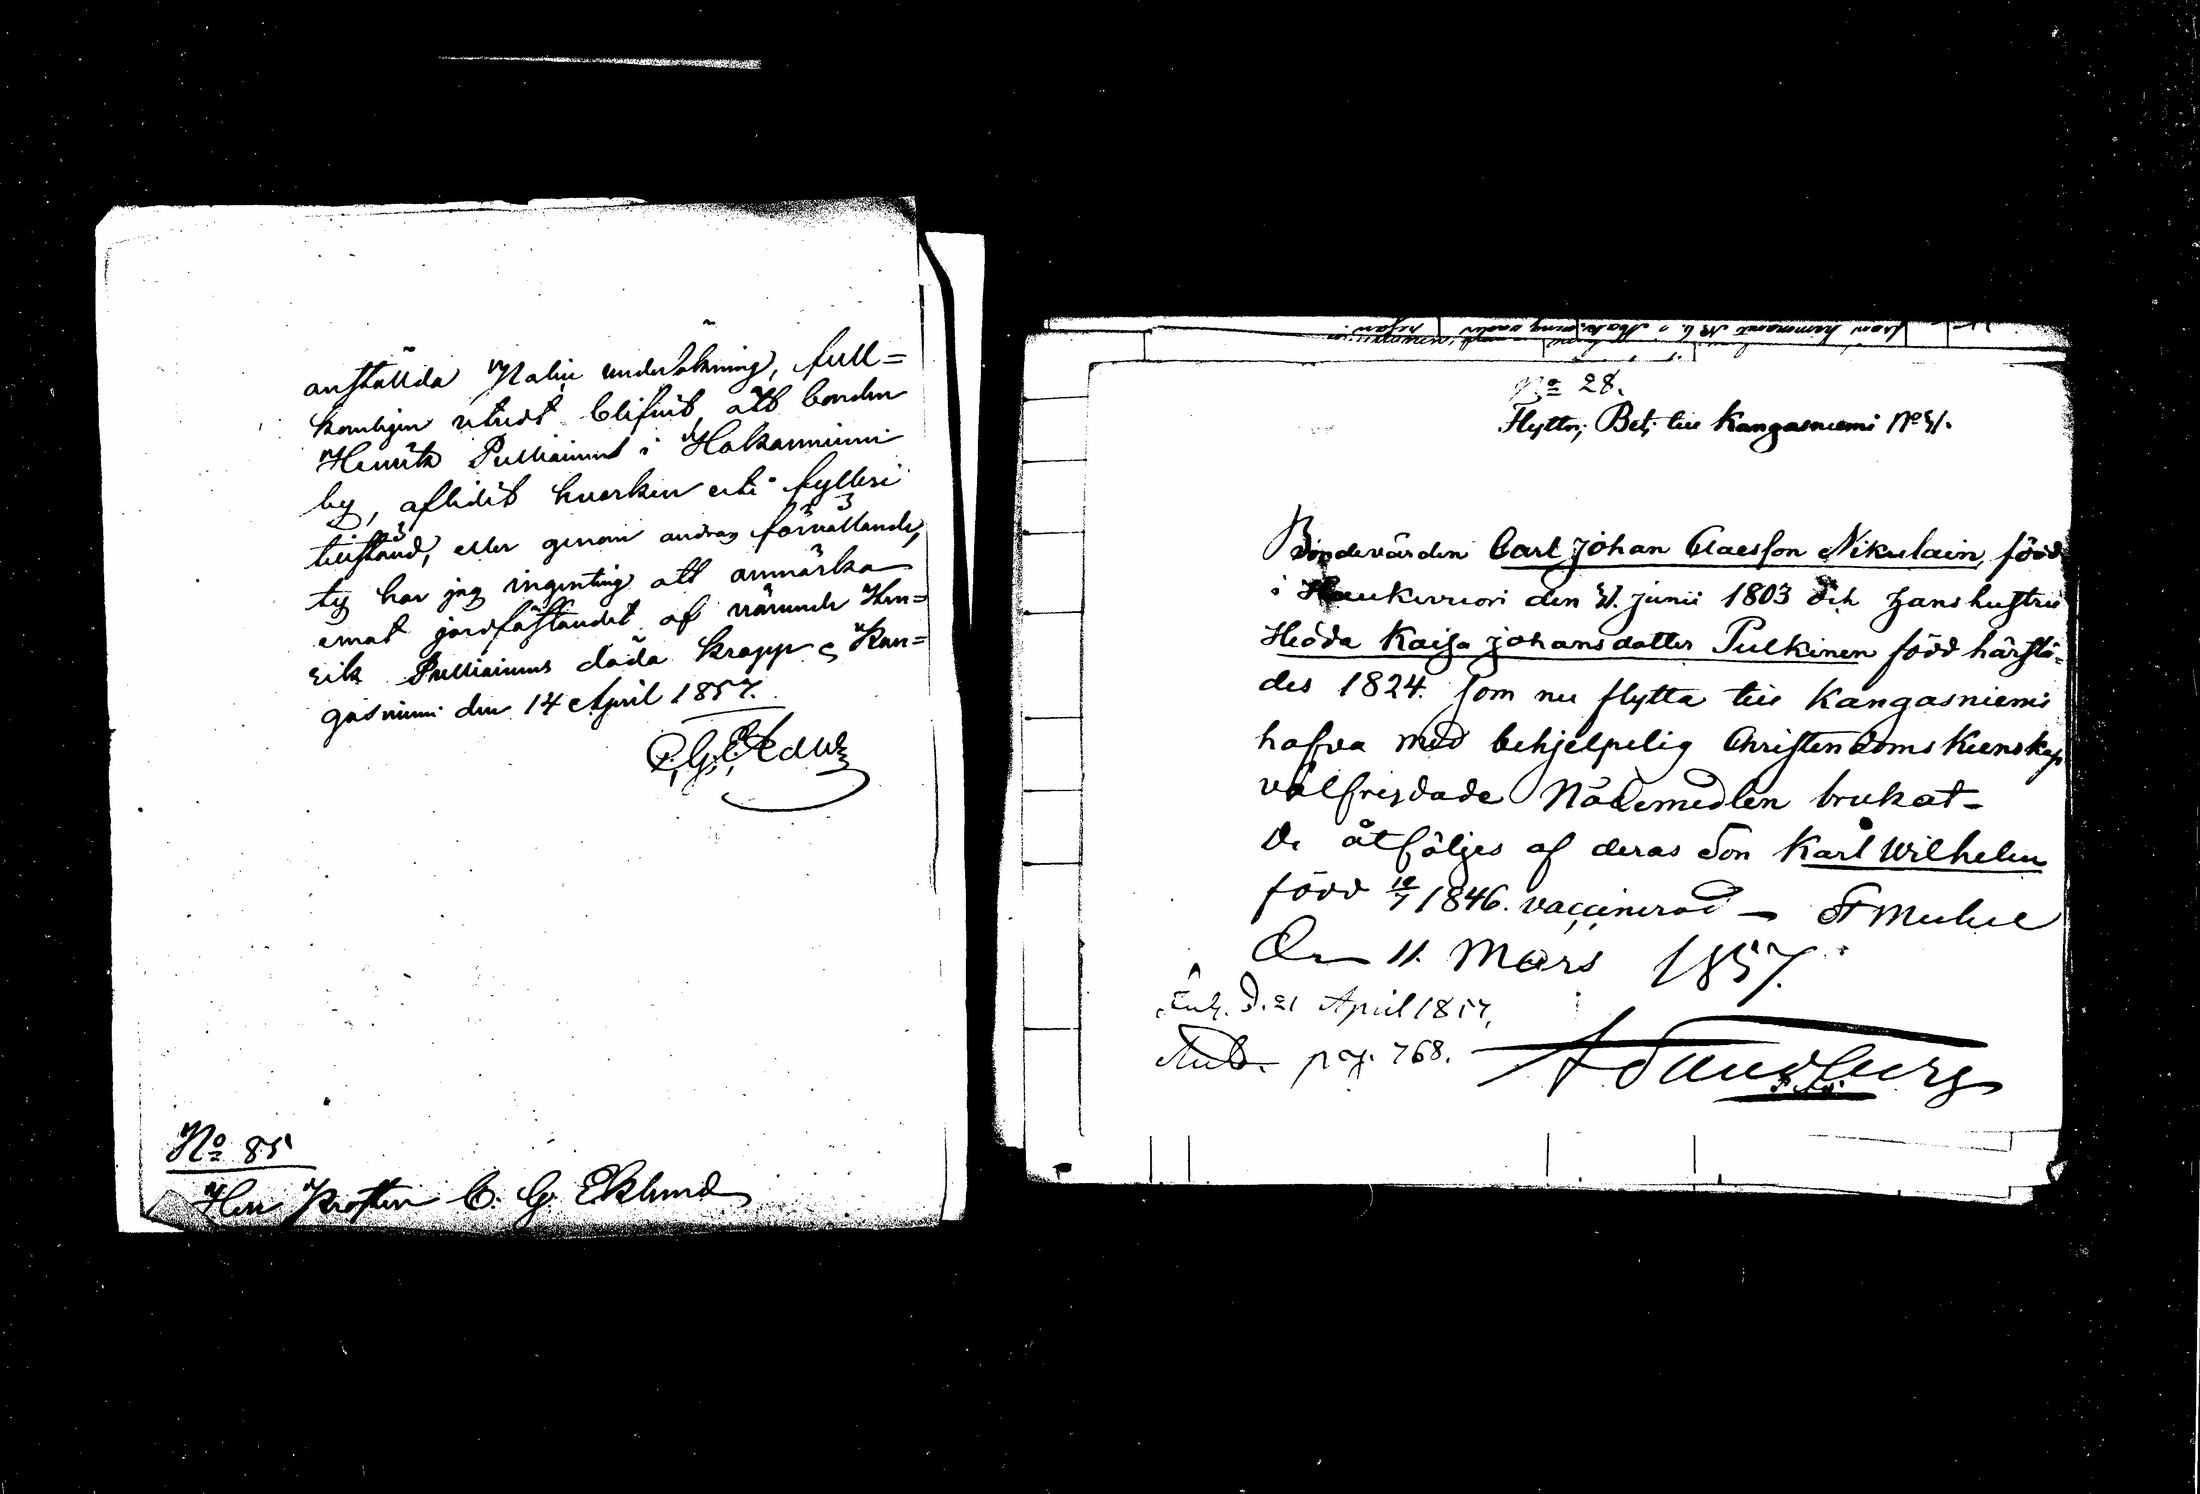 anställda Nalig undersökning, full=
komligen utredt blifvit, att bonden
Henrik Pulliainen i Hokanniemi
by, aflidit hvarken uti fylleri
tillstånd, eller genom andras förvållande,
ty har jag ingenting att anmärka
emot jordfästandet af nämnde Hen=
rik Pulliainens döda kropp. Kan=
gasniemi den 14 April 1857.
No 85
Herr Prosten C. G. Eklund
No 28.
Flyttn; Bet; till Kangasniemi No 31.
Bondevärden Carl Johan Claesson Nikulain, född
i Haukivuori den 31. Junii 1803 och hans hustru
Hedda Kaisa Johansdotter Pulkinen född härstä=
des 1824. som nu flytta till Kangasniemi
hafva med behjelpelig Christendoms Kunskap
välfrejdade Nådemedlen brukat-
De åtföljes af deras Son Karl Wilhelm
född 10/7 1846. vaccinerad - St Michel
Den 11. Mars 1857.
Ank. d. 21 April 1857.
pag. 768.
A Sandberg